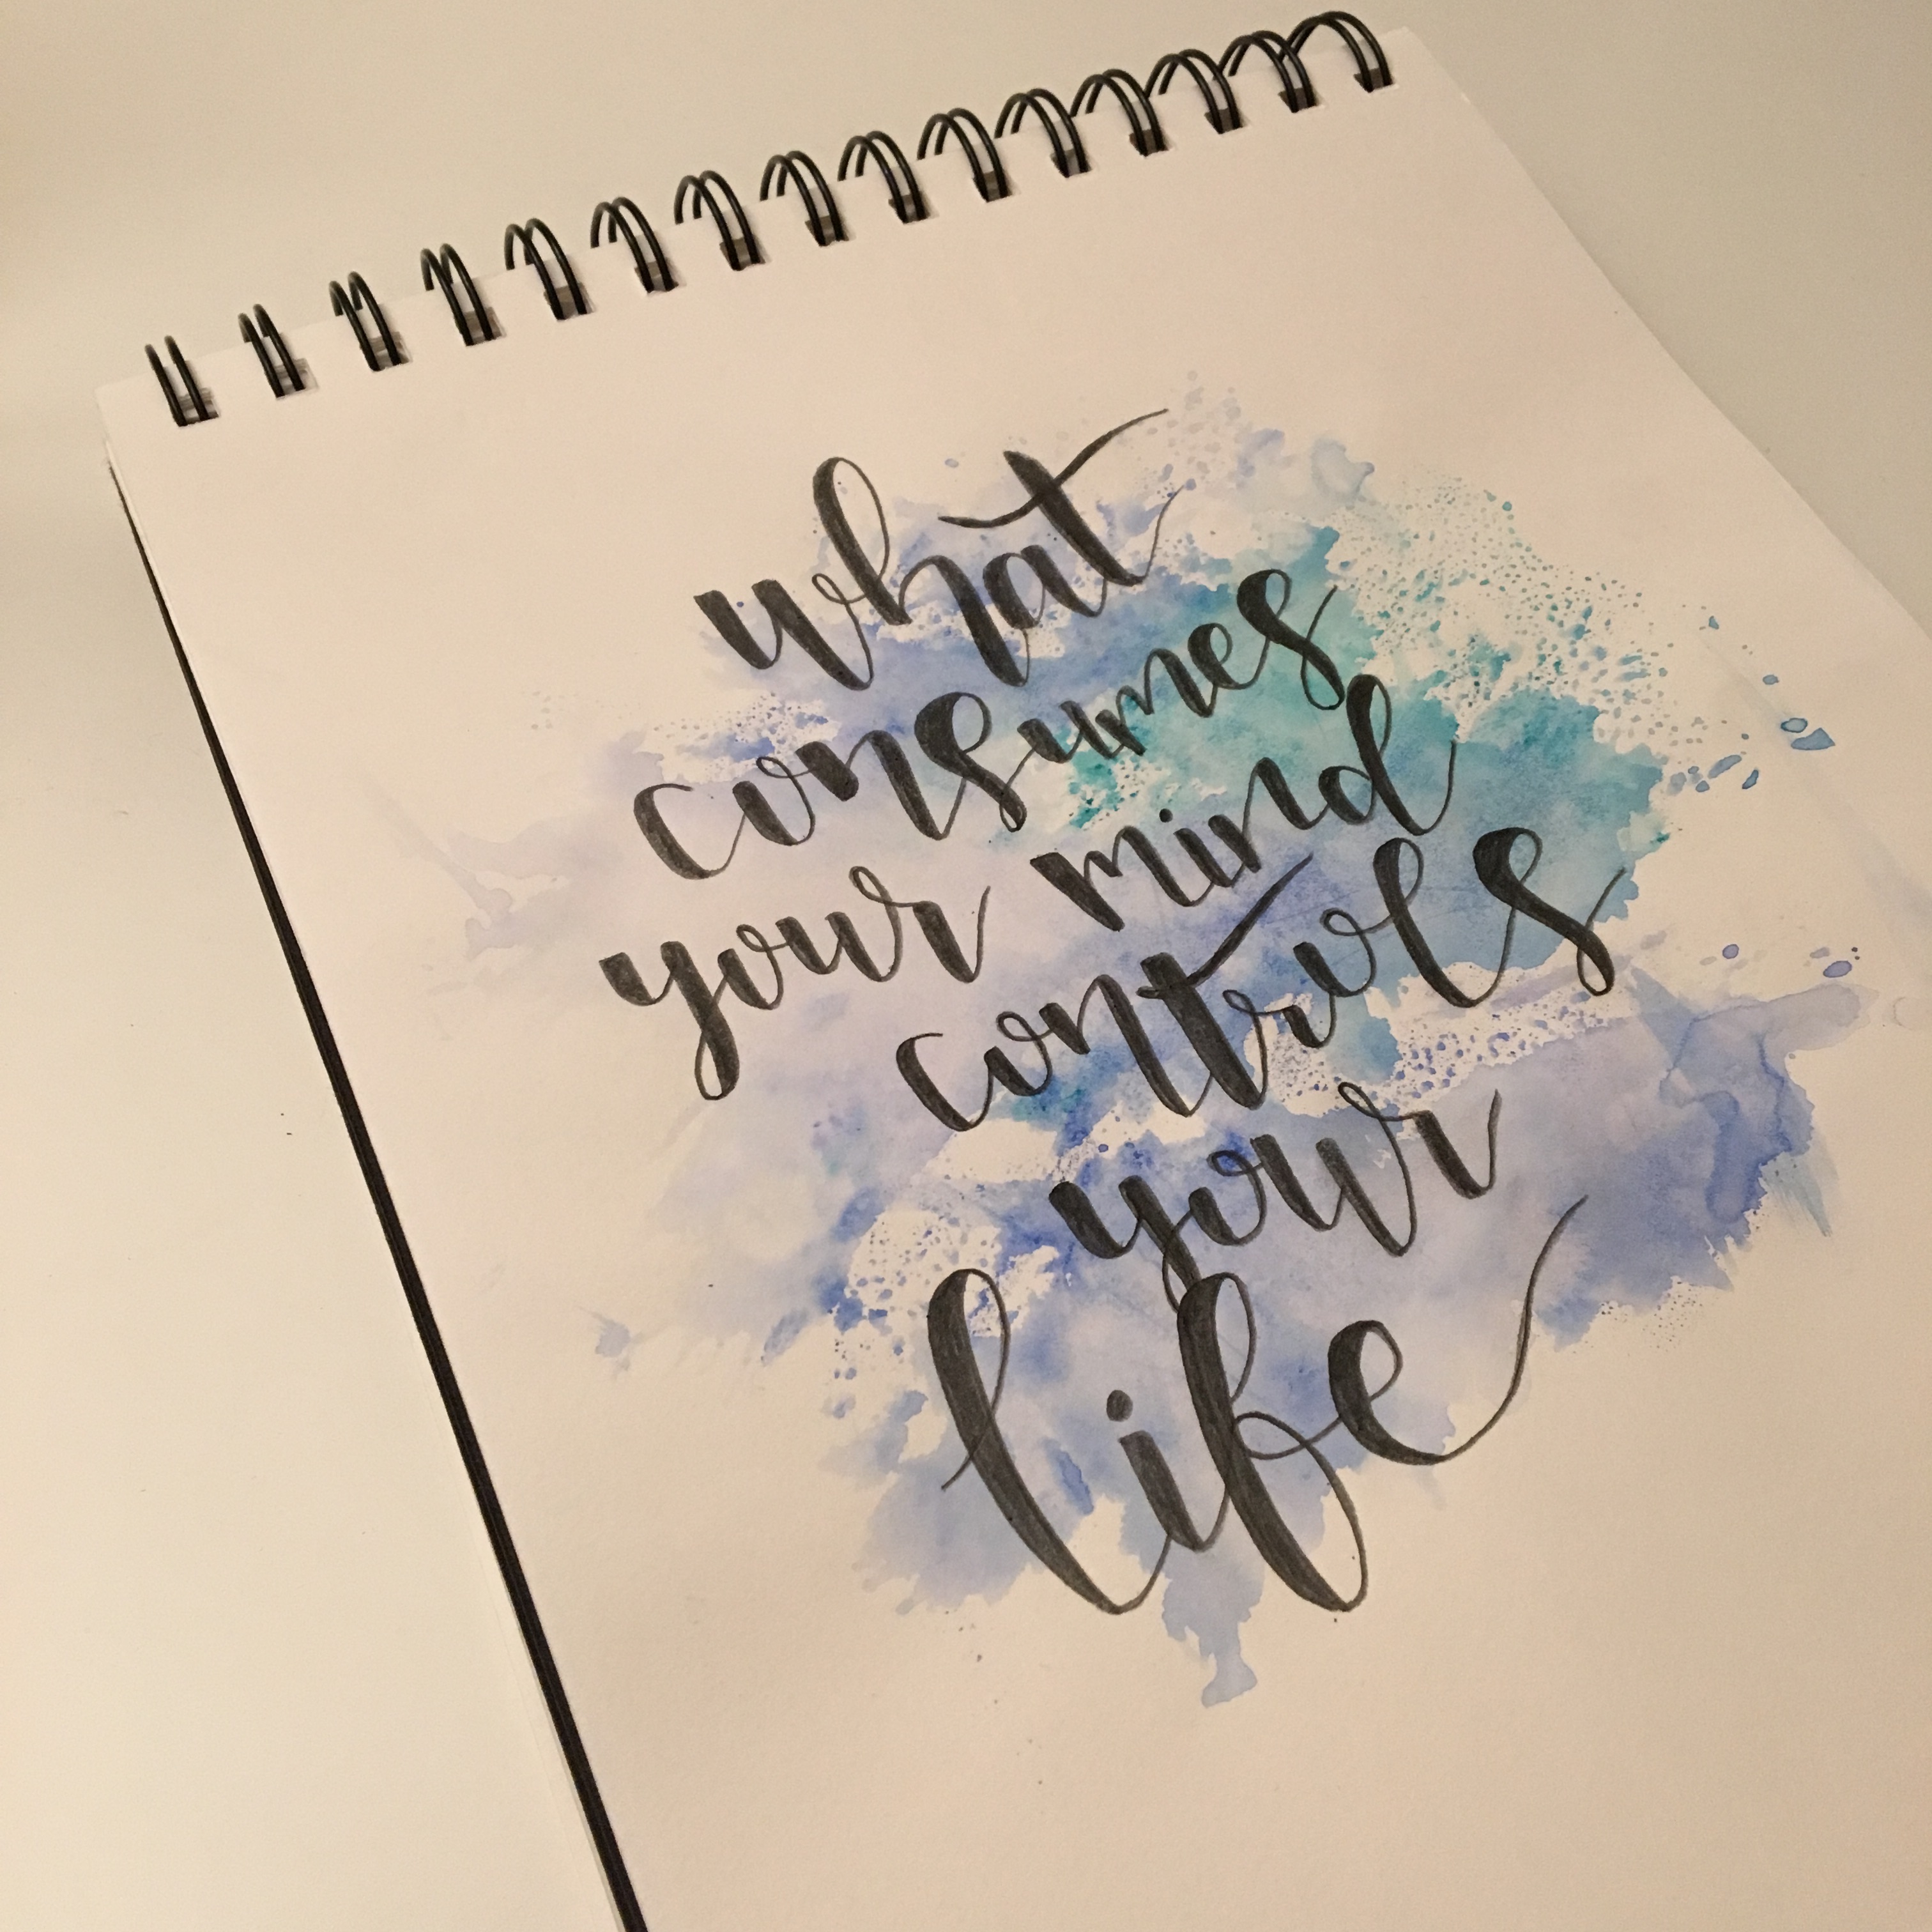 what
consumes
your mind
controls
your
life